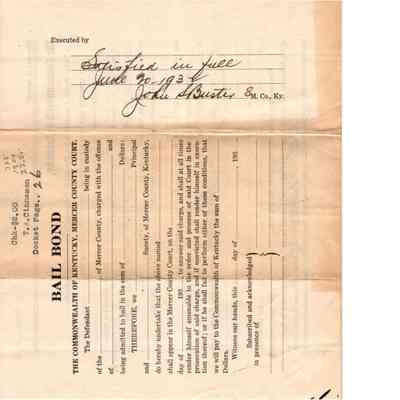 Executed by
Satisfied in full
June 20 - 193
John S Buster S M. Co., Ky.
BAIL BOND
THE COMMONWEALTH OF KENTUCKY, MERCER COUNTY COURT.
The Defendant being in custody
of the of Mercer County, charged with the offense
of and
being admitted to bail in the sum of Dollars:
THEREFORE, we Principal
and Surety, of Mercer County, Kentucky,
do hereby undertake that the above named
shall appear in the Mercer County Court, on the
day of 193 , to answer said charge, and shall at all times
render himself amenable to the order and process of said Court in the
prosecution of said charge, and if convicted shall render himself in execu-
tion thereof; or if he shall fail to perform either of these conditions, that
we will pay to the Commonwealth of Kentucky the sum of
Dollars.
Witness our hands, this day of 193
Subscribed and acknowledged
in presence of
Docket Page. 26